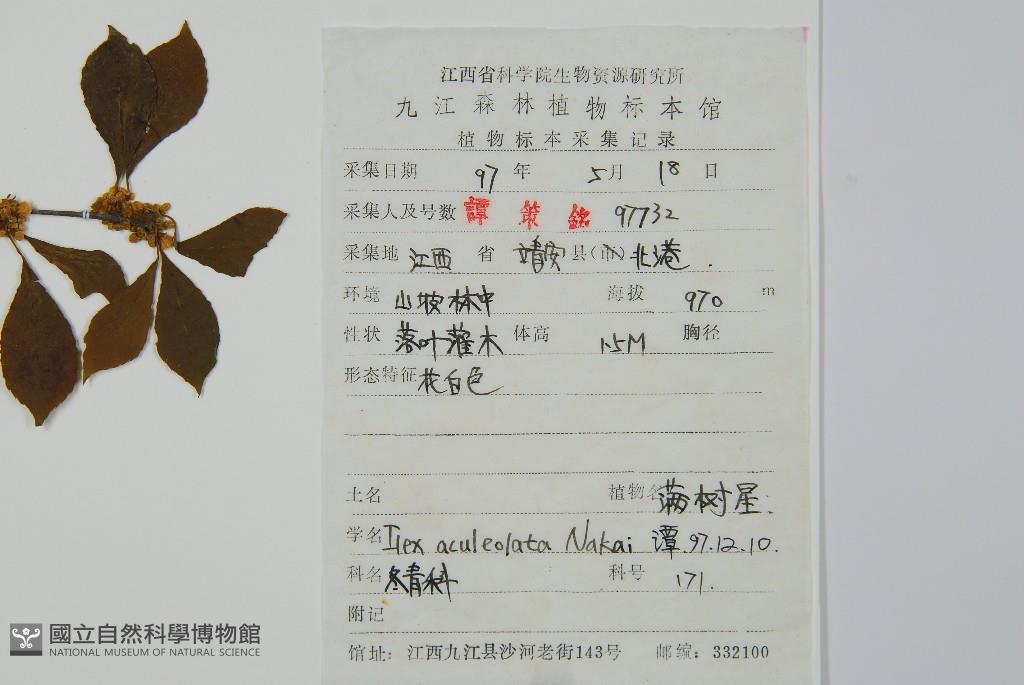 江西省科学院生物资源研究所
九江森林植物标本馆
植物标本采集记录
采集日期 97 年 5月 18 日
采集人及号数 譚策銘 97732
采集地 江西 省 靖安县(市)北港.
环境 山坡林中 海拔 970 m
性状 落叶灌木 体高 1.5M 胸径
形态特征 花白色
土名 植物名 满树星.
学名 Ilex aculeolata Nakai 譚.97.12.10.
科名 冬青科 科号 171.
附记
馆址：江西九江县沙河老街143号 邮编：332100
國立自然科學博物館
NATIONAL MUSEUM OF NATURAL SCIENCE